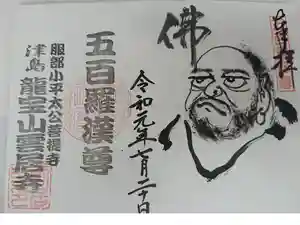 奉拝
佛
令和元年七月二十日
五百羅漢尊
服部小平太公菩提寺
津島 龍宝山雲居寺